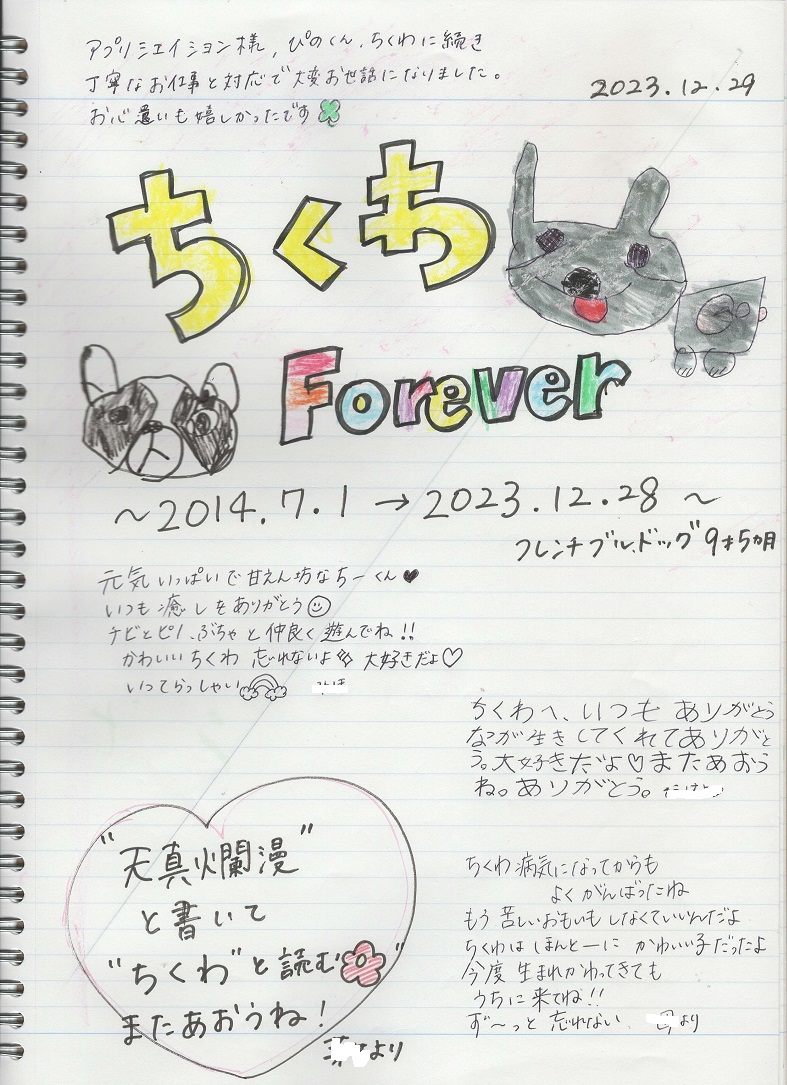 アプリシエイション様、ぴのくん、ちくわに続き
丁寧なお仕事と対応で大変お世話になりました。
お心遣いも嬉しかったです
2023.12.29
ちくわ
Forever
～2014.7.1→2023.12.28～
フレンチブルドッグ9才5カ月
元気いっぱいで甘えん坊なちーくん♥
いつも癒しをありがとう☺
チビとピノ、ぶちゃと仲良く遊んでね!!
かわいいちくわ 忘れないよ 大好きだよ♡
いってらっしゃい
ちくわへ、いつもありがとう
なが生きしてくれてありがと
う。大好きだよ♡またあおう
ね。ありがとう。
"天真爛漫"
と書いて
"ちくわ"と読む"
またあおうね!
より
ちくわ病気になってからも
よくがんばったね
もう苦しいおもいもしなくていいんだよ
ちくわはほんとーにかわいい子だったよ
今度生まれかわってきても
うちに来てね!!
ず～っと忘れない
より